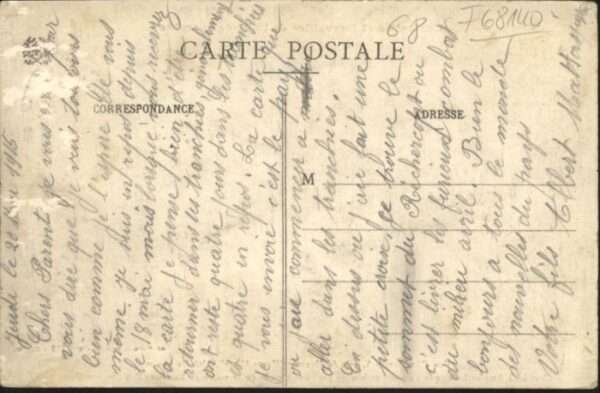 68
F68140
CARTE POSTALE
CORRESPONDANCE
ADRESSE
M
Jeudi le 2 1915
Chers Parent je vous par
vous dire que je vais toujours
bien comme je l'espère de vous
même je suis en repos depuis
le 18 mai mais lorsque vous recevrez
ta carte je pense bien d'être
retourner dans les tranchées
on reste quatre jours dans les tranchées
et quatre en repos. La carte que
je vous envoie c'est le pays
ou au commencer a
aller dans les tranchées.
En dessus ou j'ai fait une
petite croix, se trouve le
sommet du Reicherkopf ou
c'est livrer les furieux combat
du milieu avril. Bien le
bonjours a tous le monde
des nouvelles du pays
Votre fils Albert